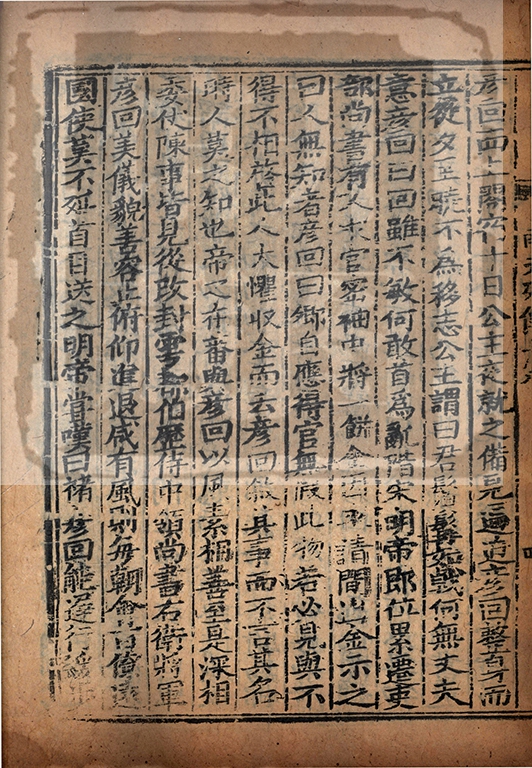 彦回西上閣宿十日公主夜就之備見逼迫彦回整身而
立從夕至曉不為移志公主謂曰君鬚髯如戟何無丈夫
意彦回曰回雖不敏何敢首為亂階宋明帝即位累遷吏
部尚書有人求官密袖中將一餅金因求請間出金示之
曰人無知者彦回曰卿自應得官無假此物若必見與不
得不相啓此人大懼收金而去彦回敘其事而不言其名
時人莫之知也帝之在蕃與彦回以風素相善至是深相
委仗陳事皆見從改封雩都伯歷侍中領尚書右衛將軍
彦回美儀貌善容止俯仰進退咸有風則每朝會百僚遠
國使莫不延首目送之明帝嘗嘆曰褚彦回能遲行緩步